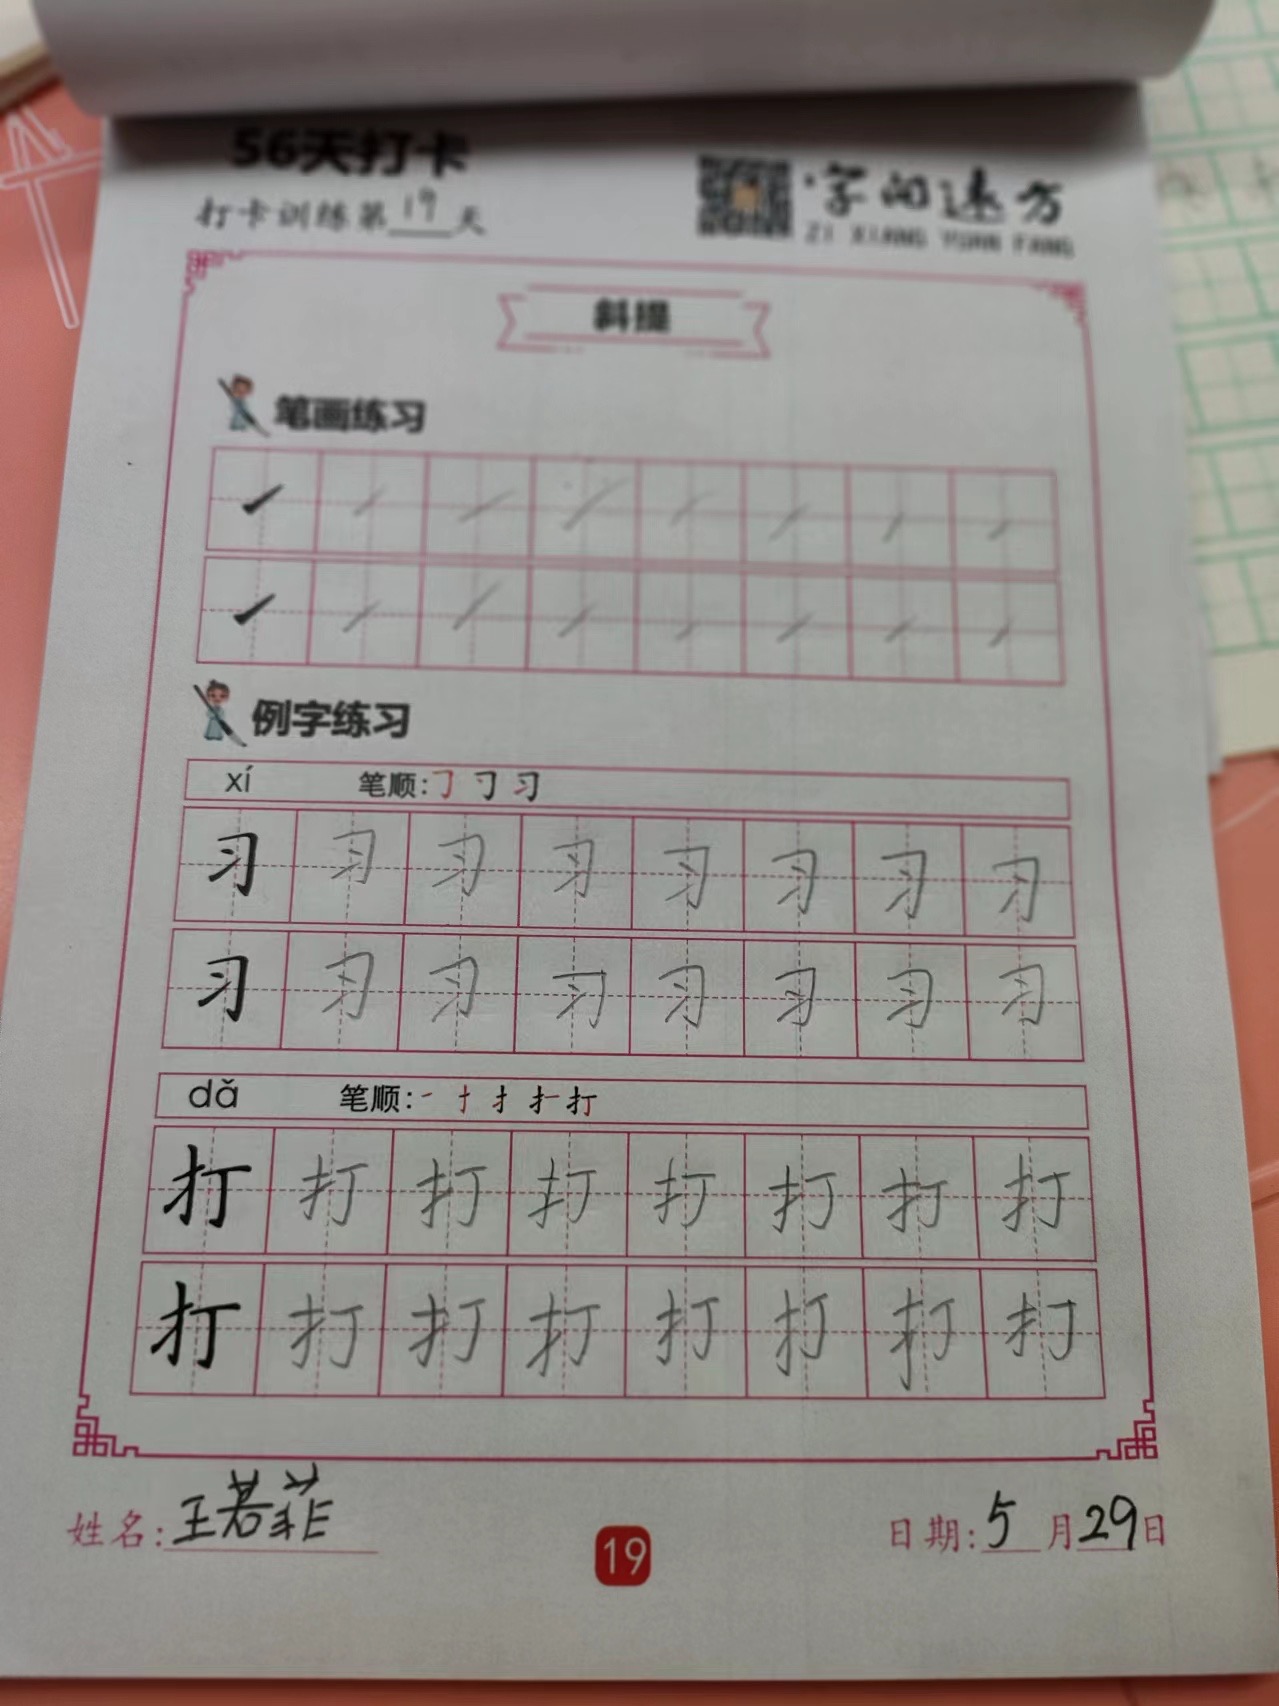 56天打卡
打卡训练第19天
字向远方
ZI XIANG YUAN FANG
斜提
笔画练习
例字练习
xí 笔顺:
习 习 习 习 习 习 习 习
习 习 习 习 习 习 习 习
dǎ 笔顺:
打 打 打 打 打 打 打 打
打 打 打 打 打 打 打 打
姓名:王若菲
19
日期:5月29日